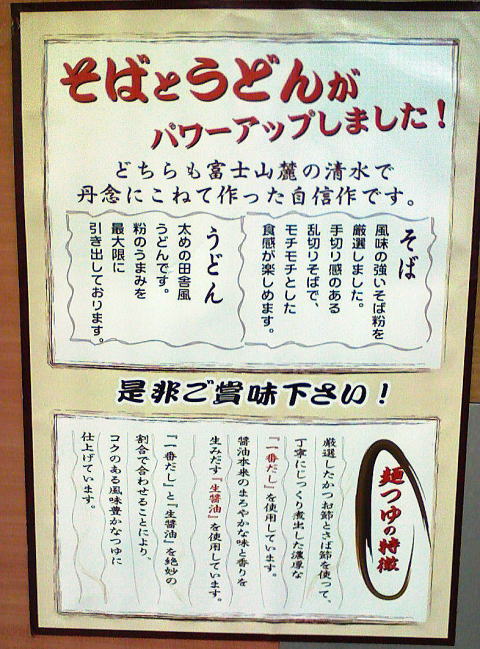 そばとうどんが
パワーアップしました!
どちらも富士山麓の清水で
丹念にこねて作った自信作です。
そば
風味の強いそば粉を
厳選しました。
手切り感のある
乱切りそばで、
モチモチとした
食感が楽しめます。
うどん
太めの田舎風
うどんです。
粉のうまみを
最大限に
引き出しております。
是非ご賞味下さい!
麺つゆの特徴
厳選したかつお節とさば節を使って、
丁寧にじっくり煮出した濃厚な
『一番だし』を使用しています。
醤油本来のまろやかな味と香りを
生みだす『生醤油』を使用しています。
『一番だし』と『生醤油』を絶妙の
割合で合わせることにより、
コクのある風味豊かなつゆに
仕上げています。